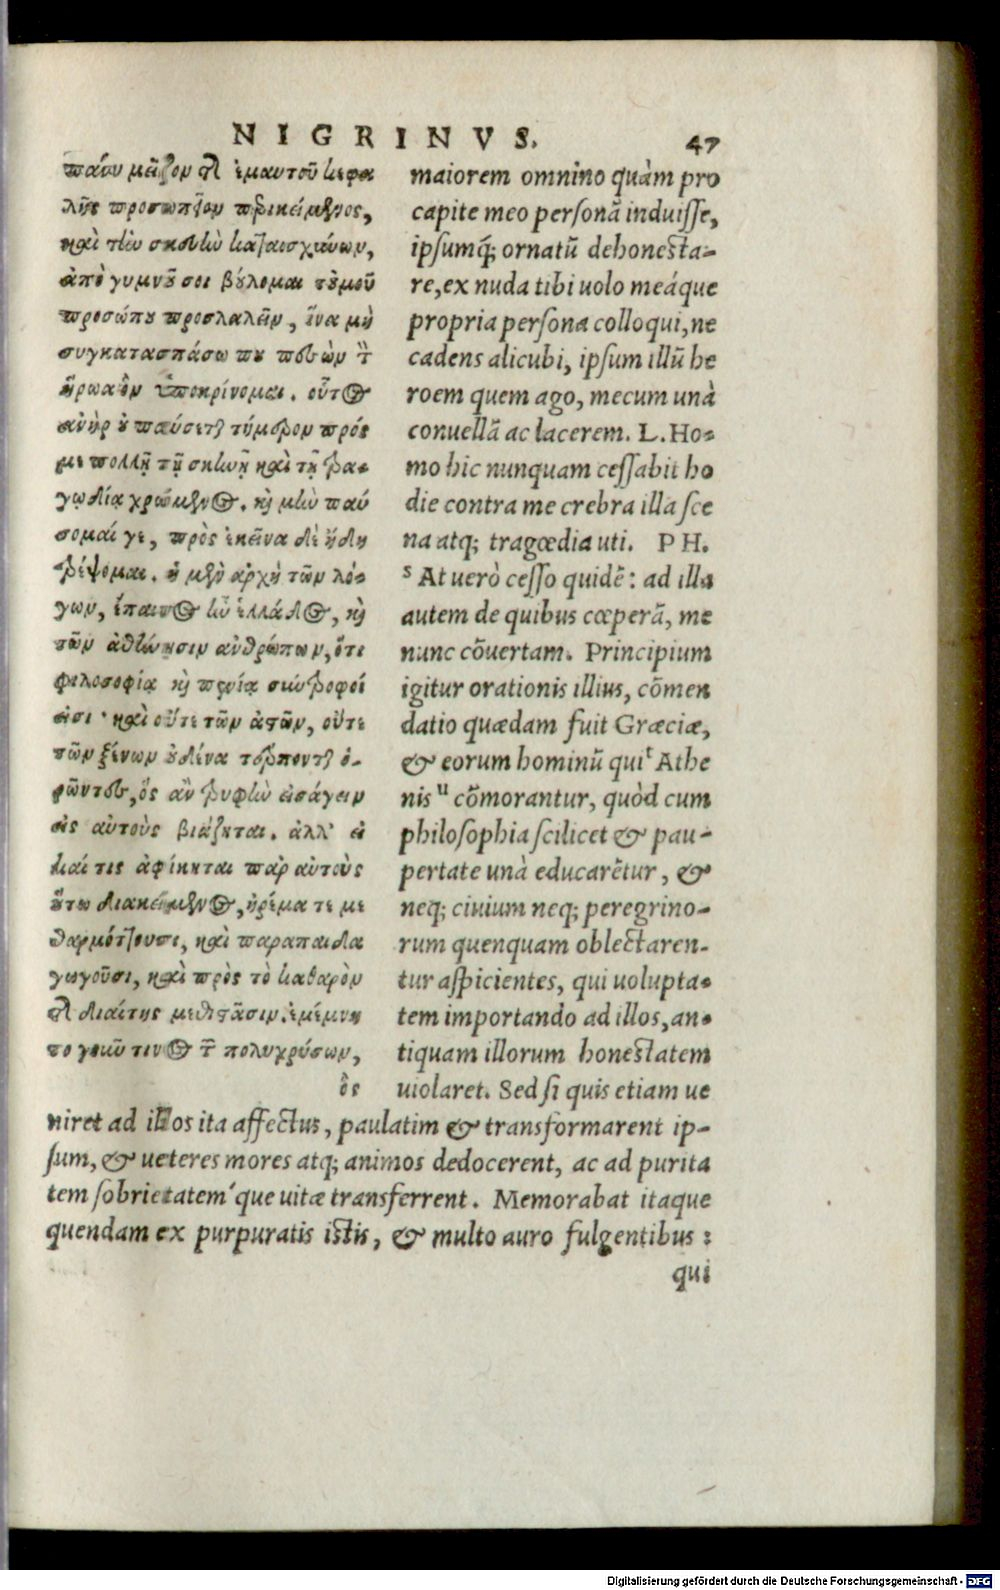 NIGRINVS. 47
πάνυ μεῖζον τῆς ἐμαυτοῦ κεφα
λῆς προσωπεῖον περικείμενος,
καὶ τὴν σκευὴν καταισχύνων,
ἀπὸ γυμνοῦ σοι βούλομαι τοὐμοῦ
προσώπου προσλαλεῖν, ἵνα μὴ
συγκατασπάσω που πεσὼν τὸν
ἥρωα ὃν ὑποκρίνομαι. οὗτος
ἀνὴρ οὐ παύσεται τήμερον πρός
με πολλῇ τῇ σκηνῇ καὶ τῇ τρα-
γῳδίᾳ χρώμενος. καὶ μὴν παύ
σομαί γε, πρὸς ἐκεῖνα δὲ ἤδη
τρέψομαι. ἡ μὲν ἀρχὴ τῶν λό-
γων, ἔπαινος ἦν ἑλλάδος, καὶ
τῶν ἀθήνησιν ἀνθρώπων, ὅτι
φιλοσοφίᾳ καὶ πενίᾳ σύντροφοί
εἰσι· καὶ οὔτε τῶν ἀστῶν, οὔτε
τῶν ξένων οὐδένα τέρπονται ὁ-
ρῶντες, ὃς ἂν τρυφὴν εἰσάγειν
εἰς αὐτοὺς βιάζηται. ἀλλ' εἰ
καί τις ἀφίκηται παρ αὐτοὺς
οὕτω διακείμενος, ἠρέμα τε με
θαρμόττουσι, καὶ παραπαιδα
γωγοῦσι, καὶ πρὸς τὸ καθαρὸν
τῆς διαίτης μεθιστᾶσιν. ἐμέμνη
το γοῦν τινος τῶν πολυχρύσων,
ὃς
maiorem omnino quàm pro
capite meo personã induisse,
ipsumq; ornatũ dehonesta-
re, ex nuda tibi uolo meáque
propria persona colloqui, ne
cadens alicubi, ipsum illũ he
roem quem ago, mecum unà
conuellã ac lacerem. L. Ho-
mo hic nunquam cessabit ho
die contra me crebra illa sce
na atq; tragœdia uti. PH.
s At uerò cesso quidẽ: ad illa
autem de quibus cœperã, me
nunc cõuertam. Principium
igitur orationis illius, cõmen
datio quædam fuit Græciæ,
& eorum hominũ qui t Athe
nis u cõmorantur, quòd cum
philosophia scilicet & pau-
pertate unà educarẽtur, &
neq; ciuium neq; peregrino-
rum quenquam oblectaren-
tur aspicientes, qui uolupta-
tem importando ad illos, an-
tiquam illorum honestatem
uiolaret. Sed si quis etiam ue
niret ad illos ita affectus, paulatim & transformarent ip-
sum, & ueteres mores atq; animos dedocerent, ac ad purita
tem sobrietatem'que uitæ transferrent. Memorabat itaque
quendam ex purpuratis istis, & multo auro fulgentibus :
qui
Digitalisierung gefördert durch die Deutsche Forschungsgemeinschaft - DFG